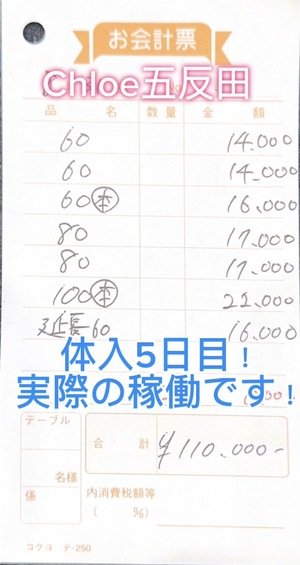 お会計票
Chloe五反田
品 名 数量 金 額
60 14.000
60 14.000
60 本 16.000
80 17.000
80 17.000
100 本 22.000
延長60 16.000
体入5日目！
実際の稼働です！
テーブル
名様
係
合 計 ¥110.000-
内消費税額等
( %)
コクヨ テ-250